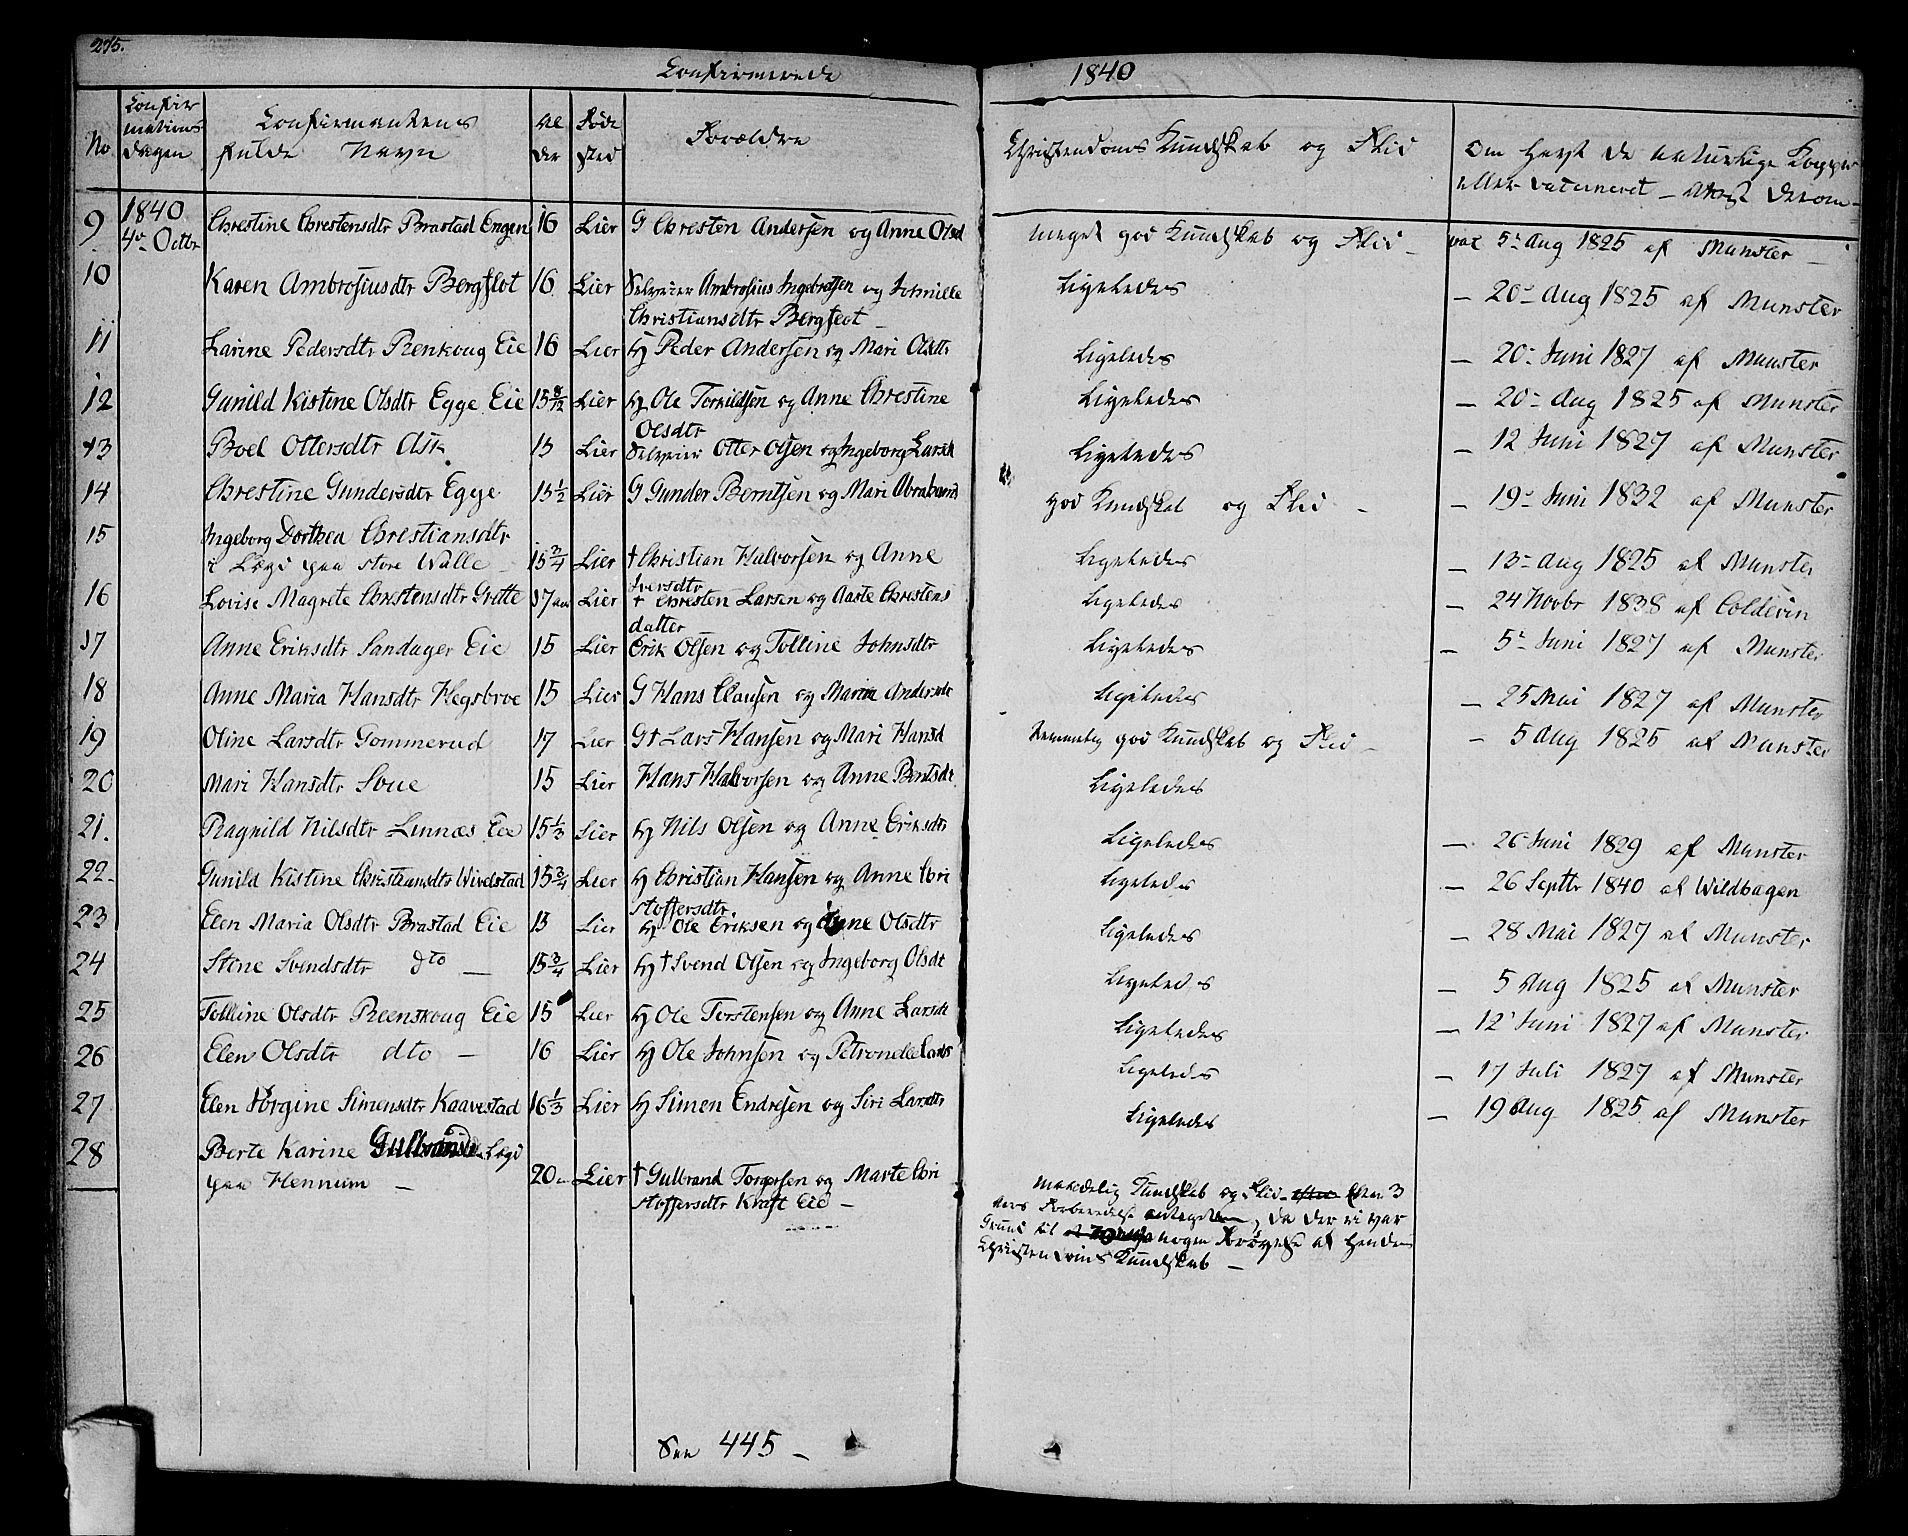 275.
Confirmerede 1840
No Confirmationsdagen Confirmantens fulde Navn Alder Fødested Forældre Christendoms Kundskab og Flid Om havt de naturlige Kopper eller vaccineret
9 1840 4de Octbr Christine Christensdtr Brastad Engen 16 Lier G Christen Andersen og Anne Olsd meget god Kundskab og Flid vac 5t Aug 1825 af Munster
10 Karen Ambrosiusdtr Bergflot 16 Lier Selveier Ambrosius Ingebretsen og
Christiansdtr Bergflot Ligeledes 20 Aug 1825 af Munster
11 Karine Pedersdtr Renskoug Eie 16 Lier H Peder Andersen og Mari Olsdtr Ligeledes 20 Juni 1827 af Munster
12 Gunild Kistine Olsdtr Egge Eie 15 8/12 Lier H Ole Torkildsen og Anne Christine
Olsdtr Ligeledes 20 Aug 1825 af Munster
13 Boel Ottersdtr Ask 15 Lier Selveier Otter Olsen og Ingeborg Larsd Ligeledes 12 Juni 1827 af Munster
14 Christine Gundersdtr Egge 15 1/2 Lier G Gunder Berntsen og Mari Abrahamsd god Kundskab og Flid 19 Juni 1832 af Munster
15 Ingeborg Dorthea Christiansdtr
i Lægd paa store Walle 15 3/4 Lier † Christian Halvorsen og Anne
Iversdtr Ligeledes 13 Aug 1825 af Munster
16 Lovise Magrete Christensdtr Gritte 17 Lier † Christen Larsen og Aaste Christens
datter Ligeledes 24 Novbr 1838 af Coldevin
17 Anne Eriksdtr Sandager Eie 15 Lier Erik Olsen og Tolline Johnsdtr Ligeledes 5t Juni 1827 af Munster
18 Anne Maria Hansdtr Hegsbroe 15 Lier G Hans Clausen og Maria Andersdtr Ligeledes 25 Mai 1827 af Munster
19 Oline Larsdtr Gommerud 17 Lier G † Lars Hansen og Mari Hansd Temmelig god Kundskab og Flid 5 Aug 1825 af Munster
20 Mari Hansdtr Soue 15 Lier Hans Halvorsen og Anne Berntsdtr Ligeledes
21. Ragnild Nilsdtr Linnæs Eie 15 1/3 Lier H Nils Olsen og Anne Eriksdtr Ligeledes 26 Juni 1829 af Munster
22 Gunild Kistine Christiansdtr Wivelstad 15 3/4 Lier H Christian Hansen og Anne Chri
stoffersdtr Ligeledes 26 Septbr 1840 af Wildhagen
23 Elen Maria Olsdtr Brastad Eie 15 Lier H Ole Eriksen og Anne Olsdtr Ligeledes 28 Mai 1827 af Munster
24 Stine Svendsdtr dto 15 3/4 Lier H † Svend Olsen og Ingeborg Olsdt Ligeledes 5 Aug 1825 af Munster
25 Tolline Olsdtr Reenskoug Eie 15 Lier H Ole Torstensen og Anne Larsdt Ligeledes 12 Juni 1827 af Munster
26 Elen Olsdtr dto 16 Lier H Ole Johnsen og Petronelle Lards Ligeledes 17 Juli 1827 af Munster
27 Elen Jørgine Simensdtr Kaavestad 16 1/3 Lier H Simen Endresen og Siri Larsdtr Ligeledes 19 Aug 1825 af Munster
28 Berte Karine Gulbrandsd Lægd
paa Hennum 20 Lier † Gulbrand Torgersen og Marte Chri
stoffersdtr Kraft Eie maadelig Kundskab og Flid efter 3
aars Forberedelse antaget, da der ei var
Grund til nogen Forøgelse af hendes
Christendoms Kundskab
See 445